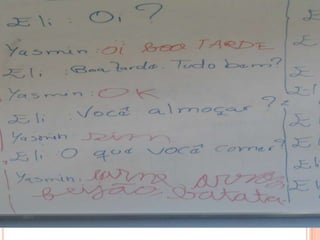 Eli: Oi?
Yasmin: OI BOA TARDE
Eli: Boa tarde. Tudo bem?
Yasmin: OK
Eli: Você almoçar?
Yasmin: sim
Eli: O que você comer?
Yasmin: carne arroz
batata